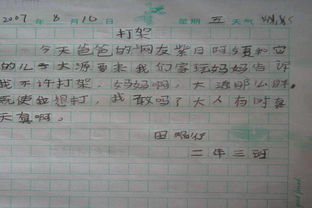 2007年8月10日 星期五 天气
打架
今天爸爸的网友柴日明领和它
的儿子大源要来我们家玩妈妈告诉
我不许打架，妈妈啊，大源那么胖。
就使我想打，我敢吗？大人有时真
天真啊。
田
二牛三河